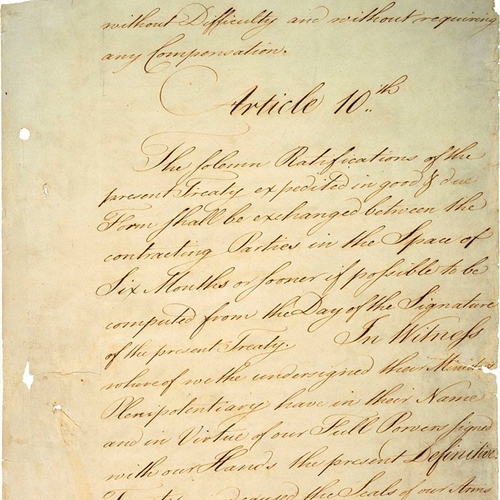 without Difficulty and without requiring
any Compensation.
Article 10.th
The solemn Ratifications of the
present Treaty expedited in good & due
Form shall be exchanged between the
contracting Parties in the Space of
Six Months or sooner if possible to be
computed from the Day of the Signature
of the present Treaty. In Witness
whereof we the undersigned their Minist
Plenipotentiary have in their Name
and in Virtue of our Full Powers signed
with our Hands the present Definitive
Treaty, and caused the Seals of our Arms